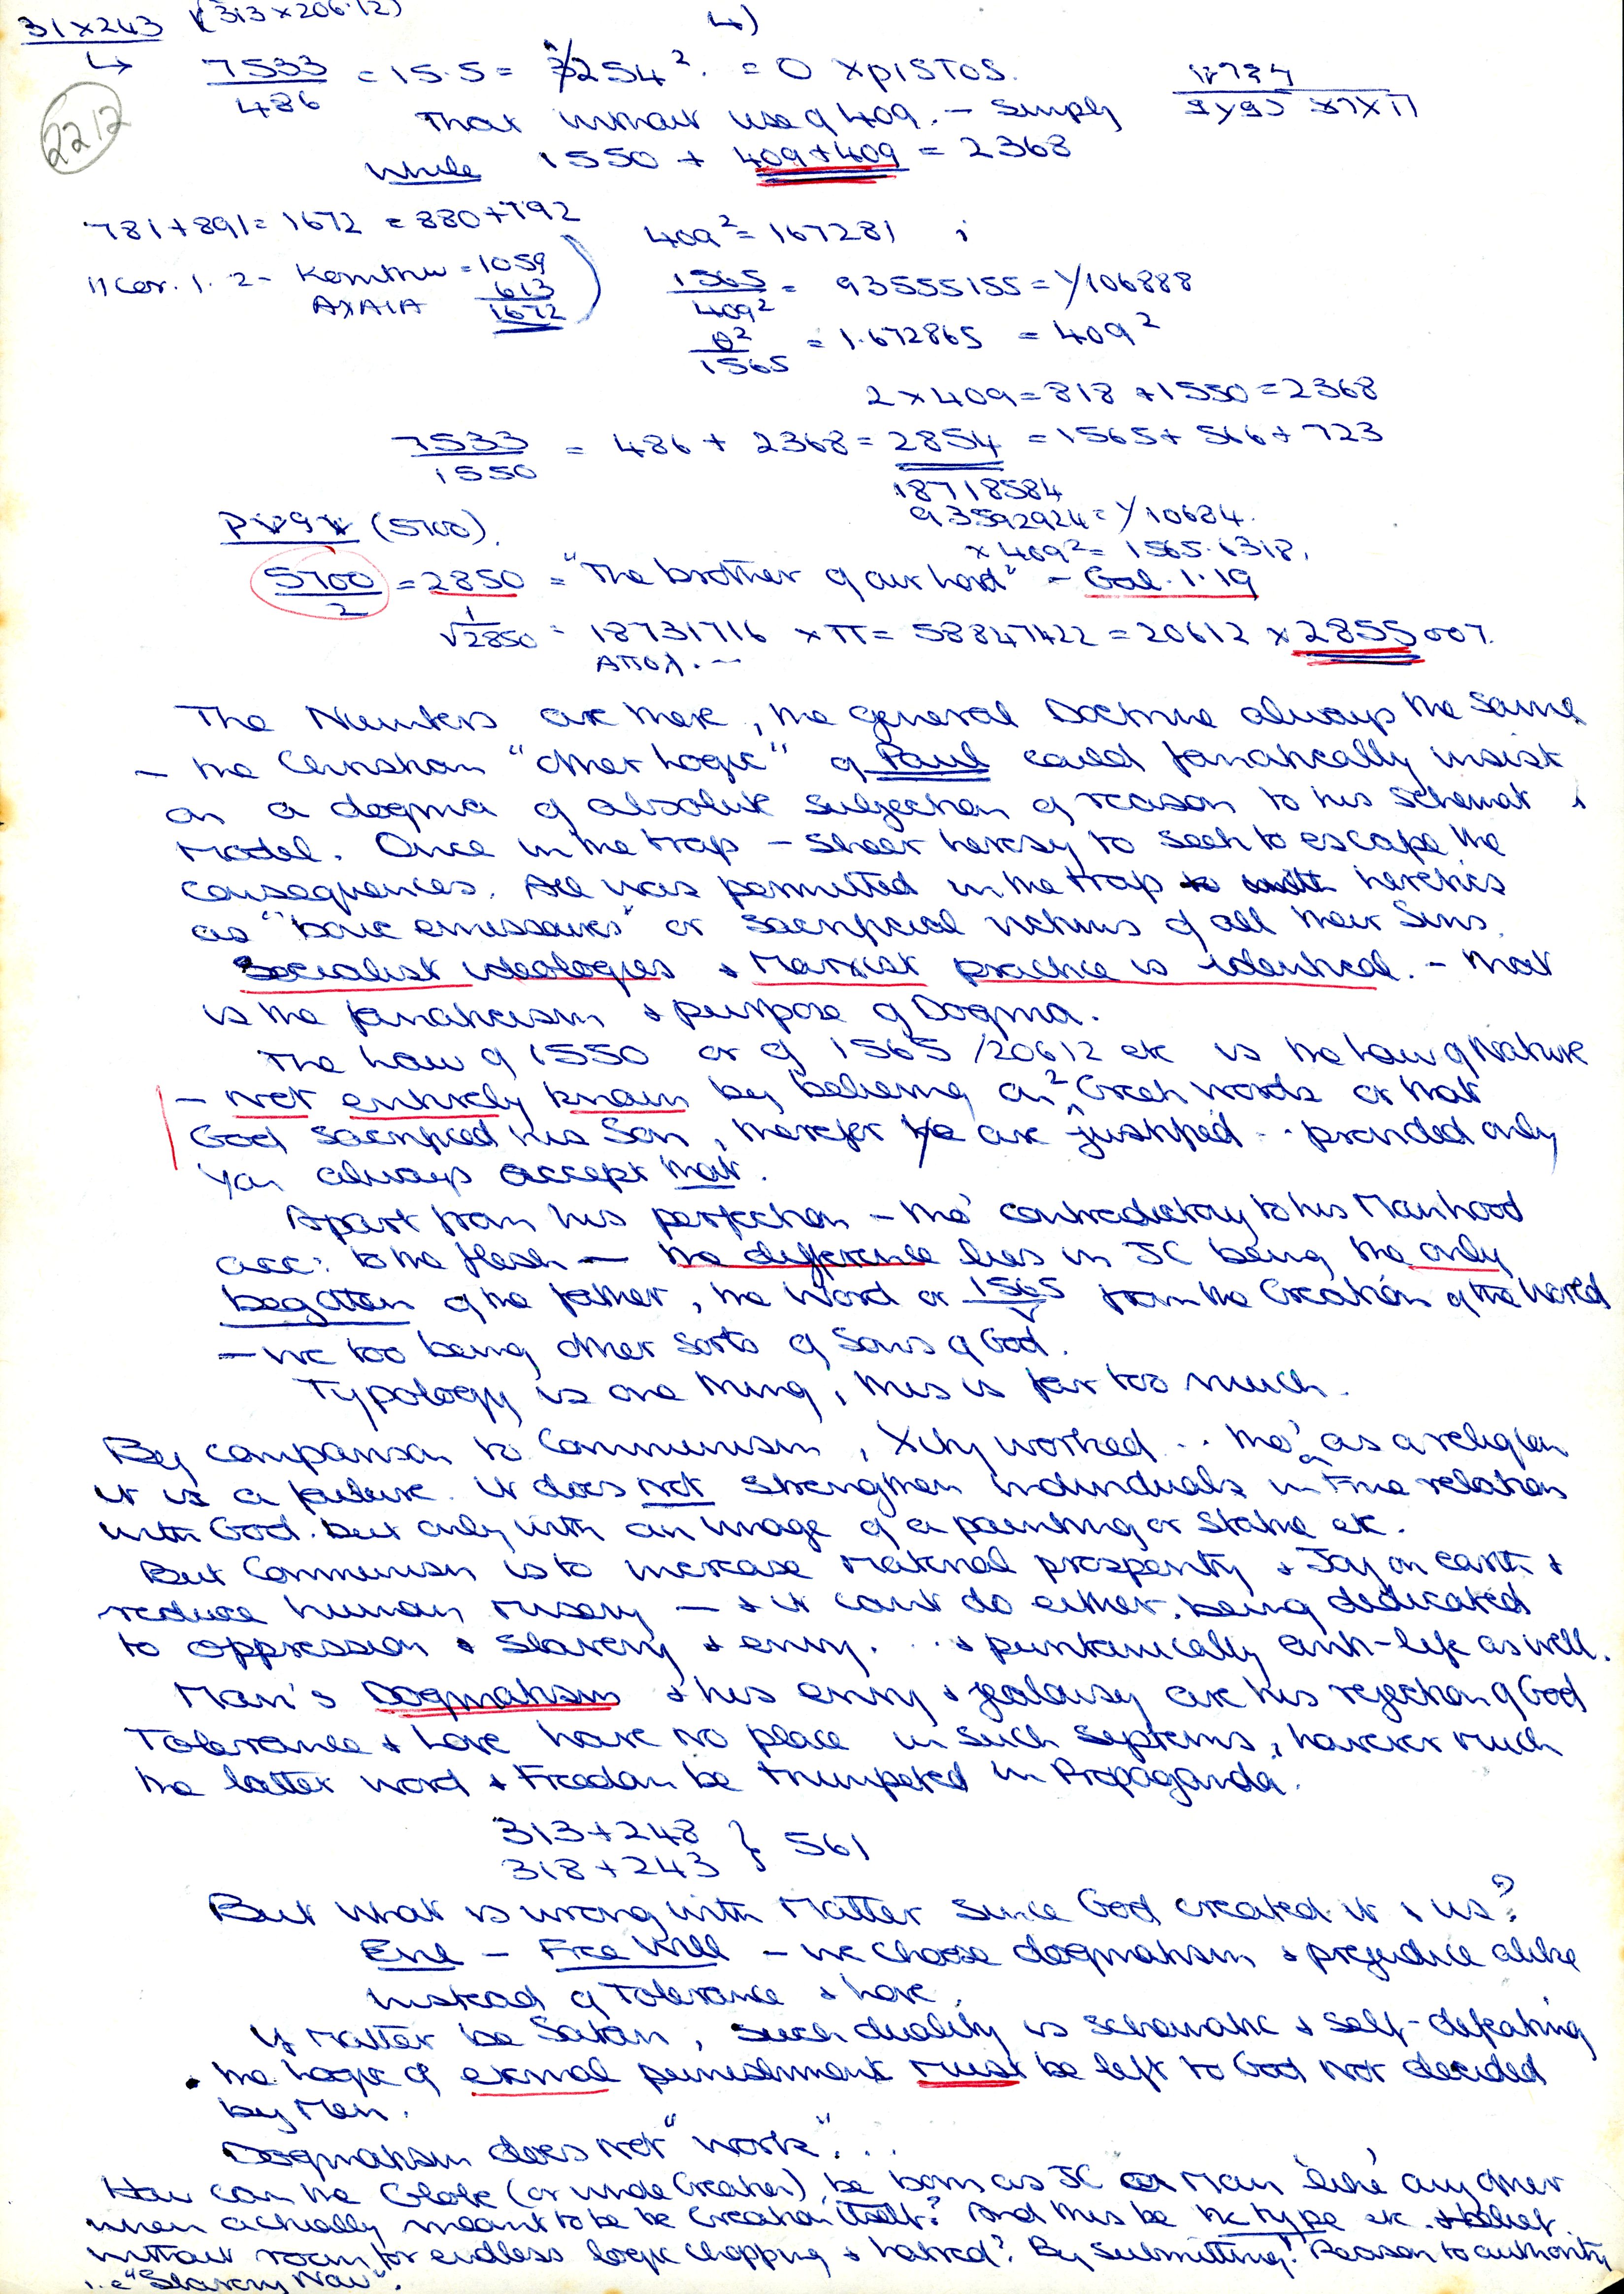 31x243 (313x206.12) 4)
↳ 7533/486 = 15.5 = 254². = O XPISTOS.
That without use of 409. - Simply
2212
While 1550 + 409+409 = 2368
781+891= 1672 = 880+792
409² = 167281 ;
II Cor. 1. 2 - Korinthw = 1059
AXAIA 613
1672
1565/409² = 93555155 = √106888
θ²/1565 = 1.672865 = 409²
2x409 = 818 + 1550 = 2368
7533/1550 = 486 + 2368 = 2854 = 1565 + 566 + 723
18718584
93592924 = √10684.
x 409² = 1565.6318.
(5700).
5700/2 = 2850 = "The brother of our Lord" - Gal. 1.19
1/√2850 = 18731716 x π = 58847422 = 20612 x 2855007.
Απολ. --
The Numbers are there, the general Doctrine always the same
- the Christian "other Logic" of Paul could fanatically insist
on a dogma of absolute subjection of reason to his schemat
Model. Once in the trap - sheer heresy to seek to escape the
consequences. All was permitted in the trap heretics
as "bouc emissaires" or sacrificial victims of all their Sins.
Socialist ideologies & Marxist practice is identical. - that
is the fanaticism & purpose of Dogma.
The Law of 1550 or of 1565 /20612 etc is the Law of Nature
- not entirely known by believing on 2 Greek words or that
God sacrificed his Son, therefor we are justified -- provided only
you always accept that.
Apart from his perfection - tho' contradictory to his Manhood
acc: to the flesh - the difference lies in JC being the only
begotten of the father, the Word or 1565 from the Creation of the World
- we too being other sorts of Sons of God.
Typology is one thing, this is far too much.
By comparison to Communism, Xity worked .. tho' as a religion
it is a failure. it does not strengthen individuals in a Fine relation
with God. but only with an image of a painting or statue etc.
But Communism is to increase Material prosperity & Joy on earth &
reduce human misery - & it can't do either, being dedicated
to oppression & slavery & envy. .. & puritanically anti-life as well.
Man's Dogmatism & his envy & jealousy are his rejection of God
Tolerance & Love have no place in such systems, however much
the latter word & Freedom be trumpeted in Propaganda.
313+248 } 561
318+243
But what is wrong with Matter since God created it & us?
Evil - Free Will - we choose dogmatism & prejudice alike
instead of Tolerance & Love.
If Matter be Satan, such duality is schematic & self-defeating
the Logic of eternal punishment must be left to God not decided
by Men.
Dogmatism does not "work"...
How can the Globe (or whole Creation) be born as JC or Man 'like' any other
when actually meant to be the Creation itself? And thus be the type etc. & belief
without room for endless logic chopping & hatred? By submitting! Reason to authority
i.e "Slavery Now".